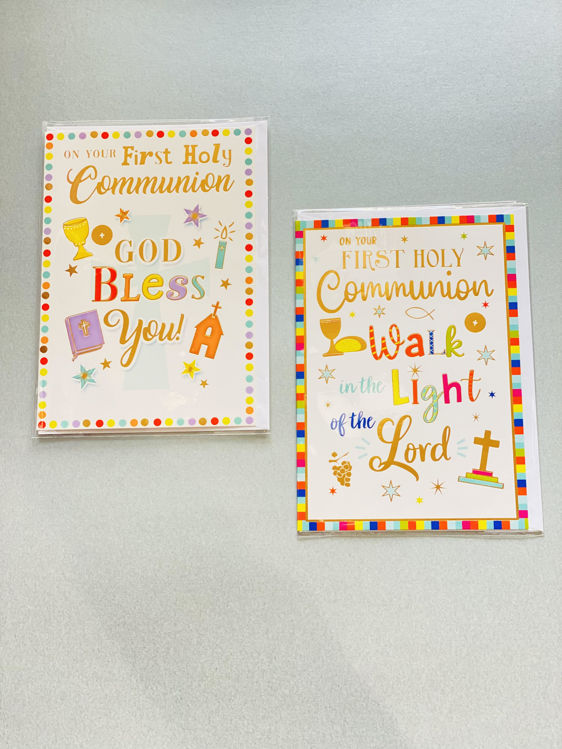 ON YOUR First Holy
Communion
GOD
BLess
You!
ON YOUR
FIRST HOLY
Communion
Walk
in the Light
of the
Lord